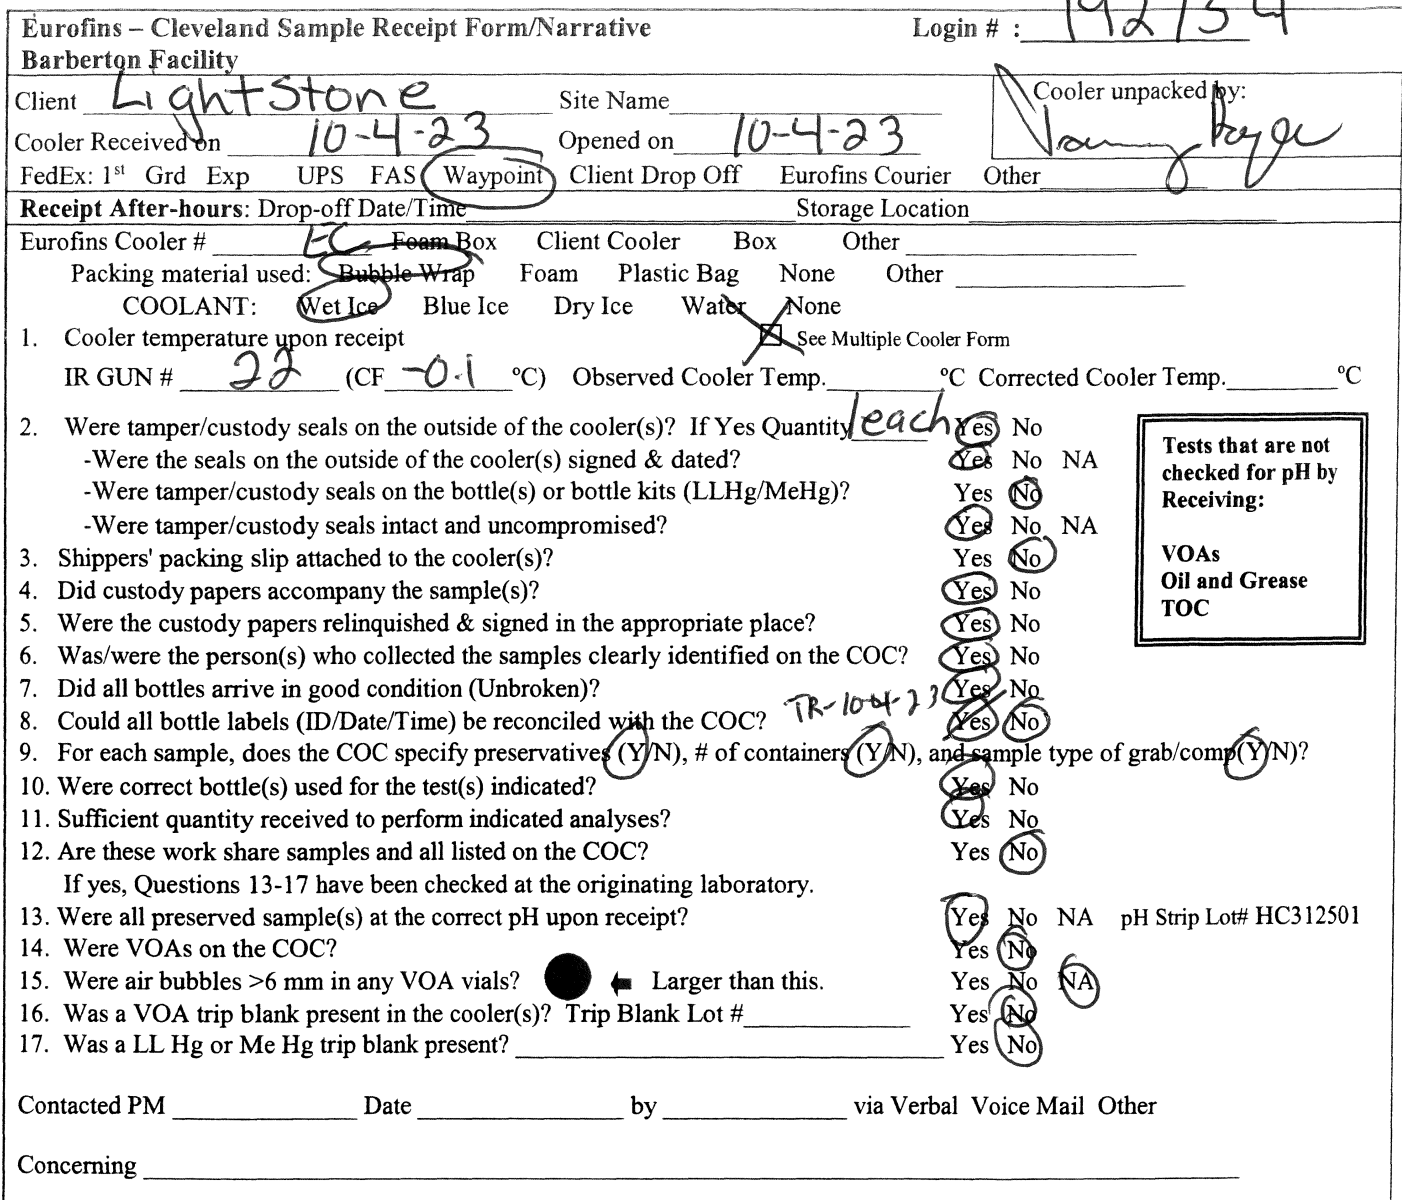 Eurofins – Cleveland Sample Receipt Form/Narrative Login # : 192154
Barberton Facility
Client Lightstone Site Name Cooler unpacked by:
Cooler Received on 10-4-23 Opened on 10-4-23
FedEx: 1st Grd Exp UPS FAS Waypoint Client Drop Off Eurofins Courier Other
Receipt After-hours: Drop-off Date/Time Storage Location
Eurofins Cooler # EC Foam Box Client Cooler Box Other
Packing material used: Bubble Wrap Foam Plastic Bag None Other
COOLANT: Wet Ice Blue Ice Dry Ice Water None
1. Cooler temperature upon receipt See Multiple Cooler Form
IR GUN # 22 (CF -0.1 °C) Observed Cooler Temp. °C Corrected Cooler Temp. °C
2. Were tamper/custody seals on the outside of the cooler(s)? If Yes Quantity 1each Yes No
-Were the seals on the outside of the cooler(s) signed & dated? Yes No NA
-Were tamper/custody seals on the bottle(s) or bottle kits (LLHg/MeHg)? Yes No
-Were tamper/custody seals intact and uncompromised? Yes No NA
3. Shippers' packing slip attached to the cooler(s)? Yes No
4. Did custody papers accompany the sample(s)? Yes No
5. Were the custody papers relinquished & signed in the appropriate place? Yes No
6. Was/were the person(s) who collected the samples clearly identified on the COC? Yes No
7. Did all bottles arrive in good condition (Unbroken)? Yes No
8. Could all bottle labels (ID/Date/Time) be reconciled with the COC? TR-10-4-23 Yes No
9. For each sample, does the COC specify preservatives (Y/N), # of containers (Y/N), and sample type of grab/comp(Y/N)?
10. Were correct bottle(s) used for the test(s) indicated? Yes No
11. Sufficient quantity received to perform indicated analyses? Yes No
12. Are these work share samples and all listed on the COC? Yes No
If yes, Questions 13-17 have been checked at the originating laboratory.
13. Were all preserved sample(s) at the correct pH upon receipt? Yes No NA pH Strip Lot# HC312501
14. Were VOAs on the COC? Yes No
15. Were air bubbles >6 mm in any VOA vials? Larger than this. Yes No NA
16. Was a VOA trip blank present in the cooler(s)? Trip Blank Lot # Yes No
17. Was a LL Hg or Me Hg trip blank present? Yes No
Tests that are not
checked for pH by
Receiving:
VOAs
Oil and Grease
TOC
Contacted PM Date by via Verbal Voice Mail Other
Concerning